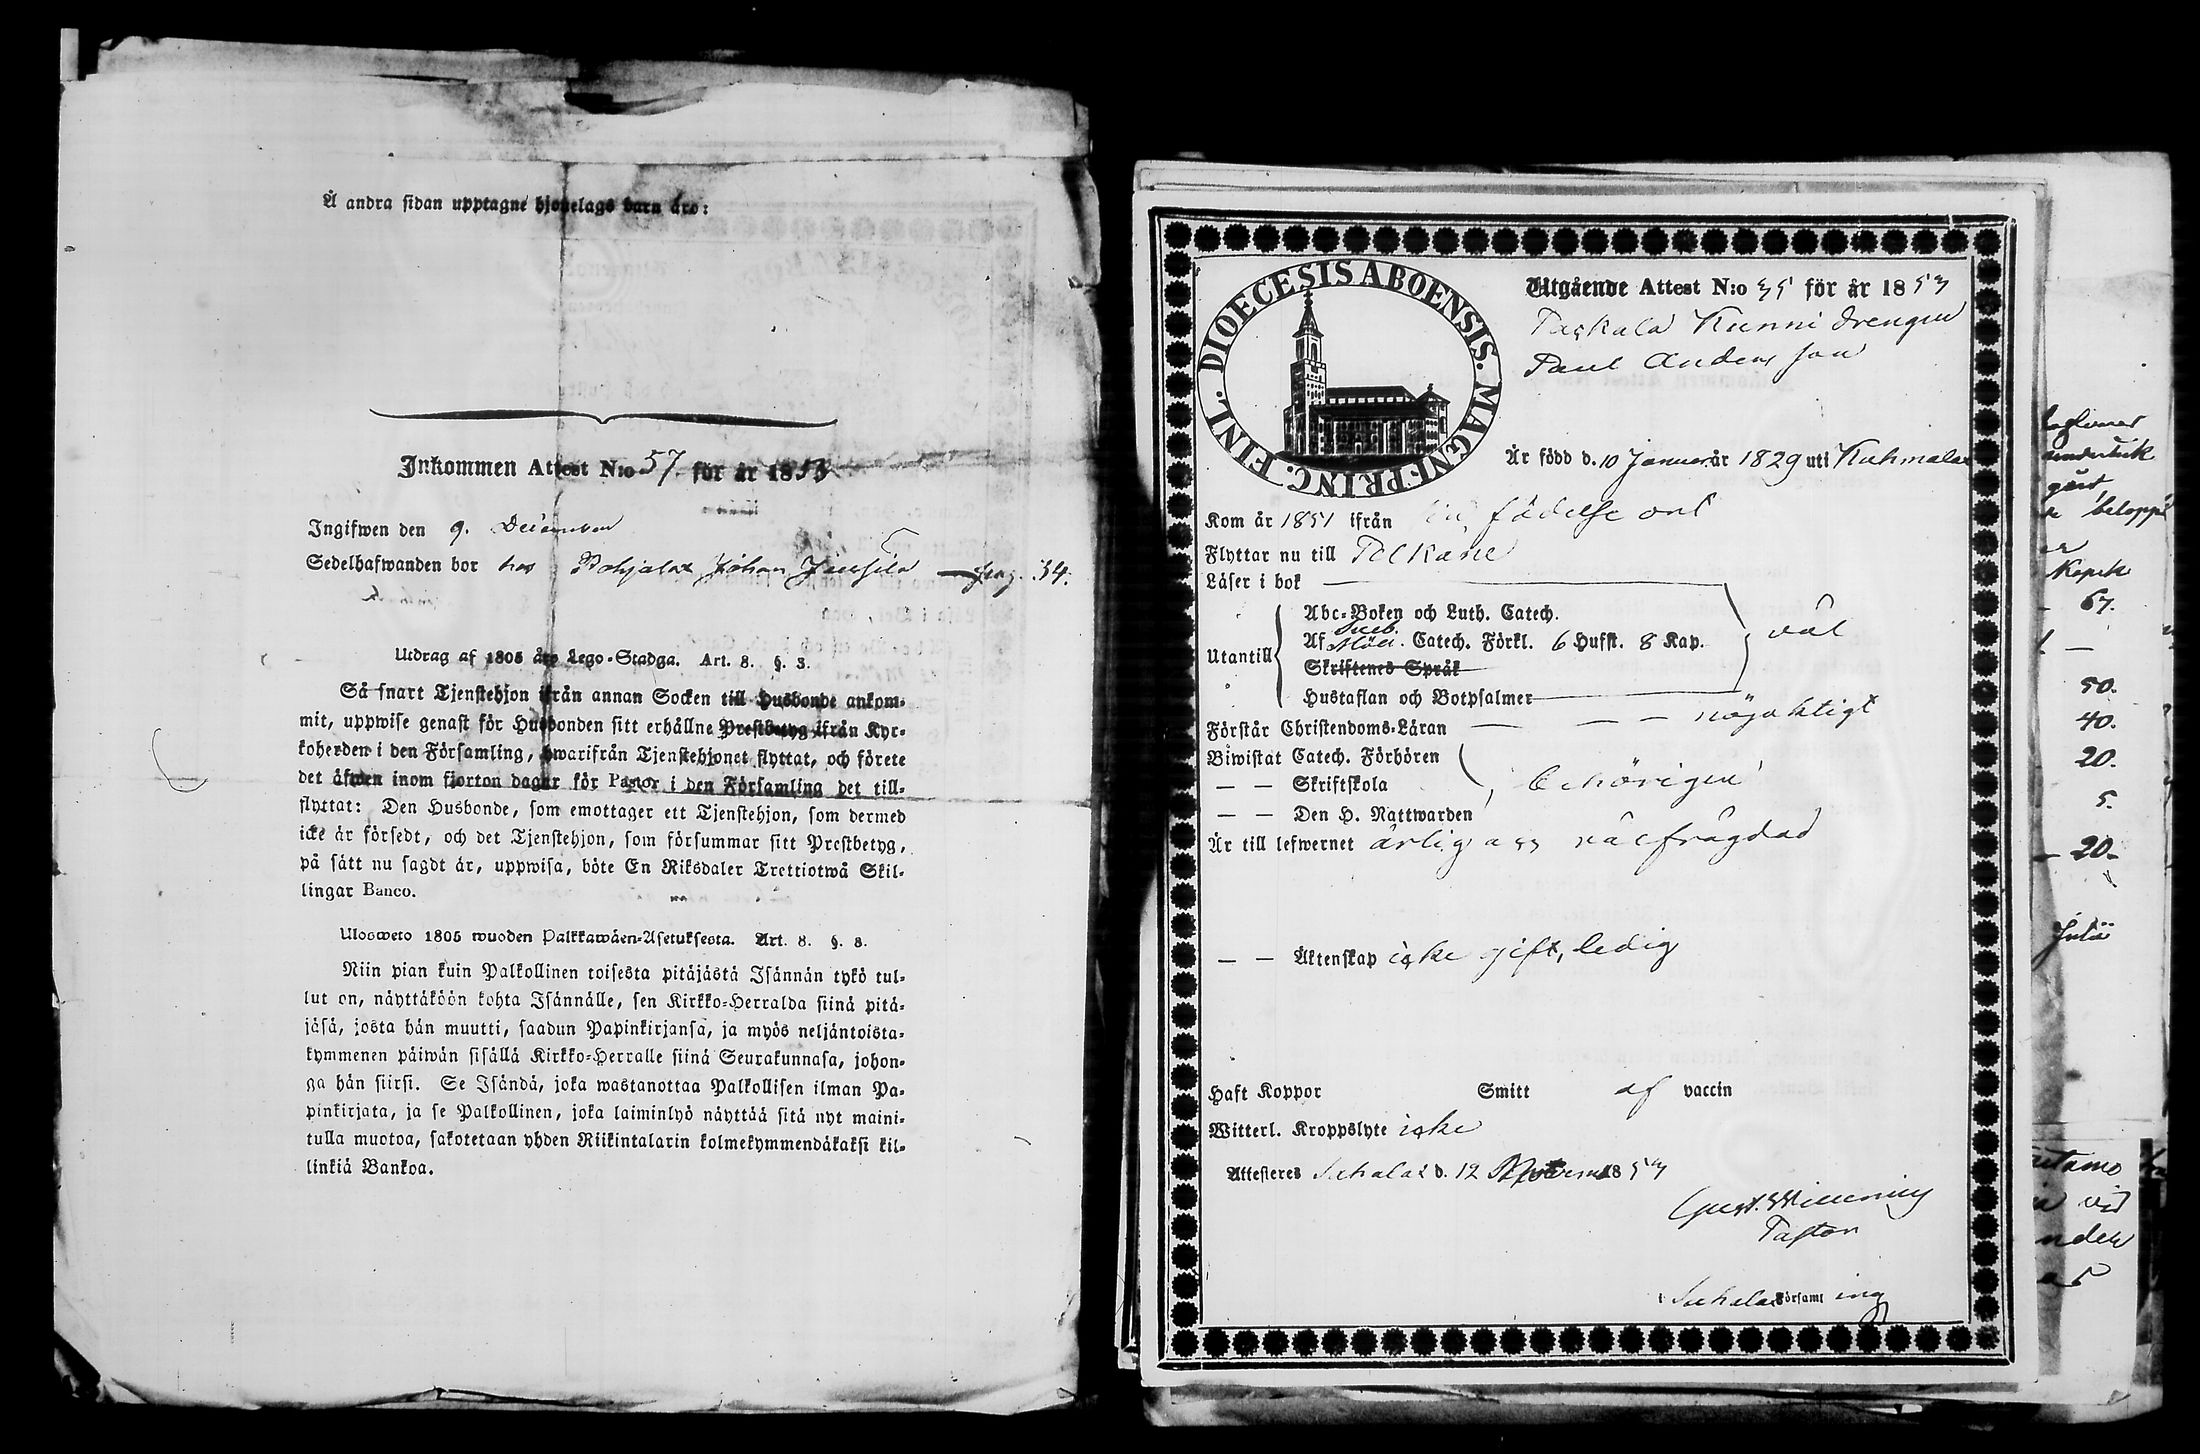 Å andra sidan upptagne hjonelags barn äro:
Inkommen Attest N:o 57 för år 1853
Ingifwen den 9. December
Sedelhafwanden bor hos Pohjalax Johan Jaussila pag. 34.
Utdrag af 1805 års Lego-Stadga. Art. 8. §. 3.
Så snart Tjenstehjon ifrån annan Socken till Husbonde ankom-
mit, uppwise genast för Husbonden sitt erhållne Prestbetyg ifrån Kyr-
koherden i den Församling, hwarifrån Tjenstehjonet flyttat, och förete
det äfwen inom fjorton dagar för Pastor i den Församling det till-
flyttat: Den Husbonde, som emottager ett Tjenstehjon, som dermed
icke är försedt, och det Tjenstehjon, som försummar sitt Prestbetyg,
på sätt nu sagdt är, uppwisa, böte En Riksdaler Trettiotwå Skil-
lingar Banco.
Ulosweto 1805 wuoden Palkkawäen-Asetuksesta. Art. 8. §. 8.
Niin pian kuin Palkollinen toisesta pitäjästä Isännän tykö tul-
lut on, näyttäköön kohta Isännälle, sen Kirkko-Herralda siinä pitä-
jäsä, josta hän muutti, saadun Papinkirjansa, ja myös neljäntoista-
kymmenen päiwän sisällä Kirkko-Herralle siinä Seurakunnasa, johon-
ga hän siirsi. Se Isändä, joka wastanottaa Palkollisen ilman Pa-
pinkirjata, ja se Palkollinen, joka laiminlyö näyttää sitä nyt maini-
tulla muotoa, sakotetaan yhden Riikintalarin kolmekymmendäkaksi kil-
linkiä Bankoa.
DIOECESIS ABOENSIS. MAGNI PRINC. FINL.
Utgående Attest N:o 35 för år 1853
Taskala Kunni drengen
Paul Andersson
Är född d. 10 Januar år 1829 uti Kuhmalax
Kom år 1851 ifrån födelse ort
Flyttar nu till Pelkäne
Läser i bok
Utantill Abc-Boken och Luth. Catech.
Sveb.
Af Möll. Catech. Förkl. 6 Hufst. 8 Kap. väl
Skriftenes Språk
Hustaflan och Botpsalmer
Förstår Christendoms-Läran nöjaktigt
Biwistat Catech. Förhören
— — Skriftskola behörigen
— — Den H. Nattwarden
Är till lefwernet ärlig och välfrägdad
— — Äktenskap icke gift, ledig
Haft Koppor Smitt af vaccin
Witterl. Kroppslyte icke
Attesteras Sahalax d. 12 Novem 1853
Gust. Wilenius
Pastor
i Sahalax Församling
50.
40.
20.
5.
20
Julii